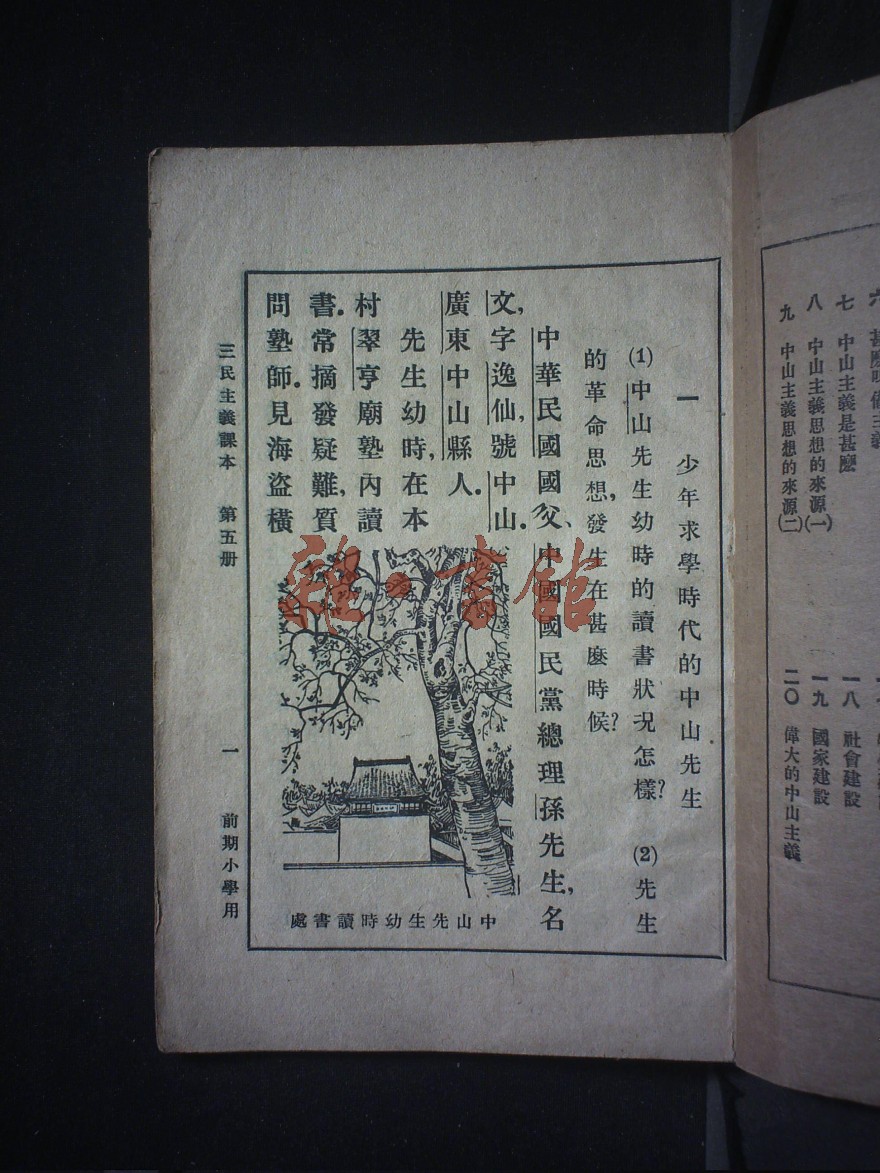 一 少年求學時代的中山先生
(1)中山先生幼時的讀書狀況怎樣？ (2)先生
的革命思想，發生在甚麼時候？
中華民國國父、中國國民黨總理孫先生，名
文，字逸仙，號中山。
廣東中山縣人。
先生幼時，在本
村翠亨廟塾內讀
書。常摘發疑難，質
問塾師。見海盜橫
中山先生幼時讀書處
三民主義課本 第五册 一 前期小學用
雜·書館
七 中山主義是甚麼
八 中山主義思想的來源(一)
九 中山主義思想的來源(二)
一八 社會建設
一九 國家建設
二〇 偉大的中山主義